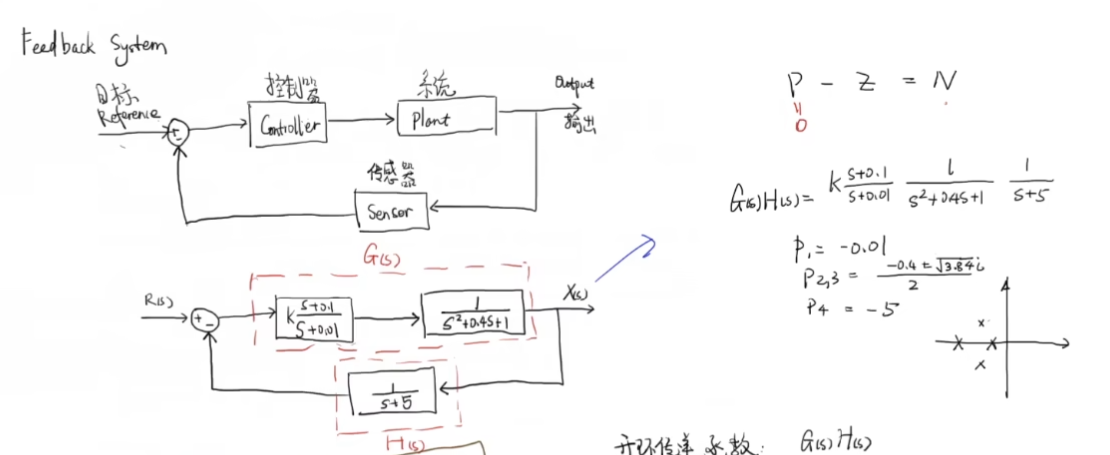 Feedback System
目标
Reference
控制器
Controller
系统
Plant
Output
输出
+
-
传感器
Sensor
G(s)
R(s)
+
-
K (s+0.1)/(s+0.01)
1/(s²+0.4s+1)
X(s)
1/(s+5)
H(s)
P - Z = N
=
0
G(s)H(s) = K (s+0.1)/(s+0.01) 1/(s²+0.4s+1) 1/(s+5)
P₁ = -0.01
P₂,₃ = (-0.4 ± √3.84 i)/2
P₄ = -5
开环传递函数: G(s)H(s)